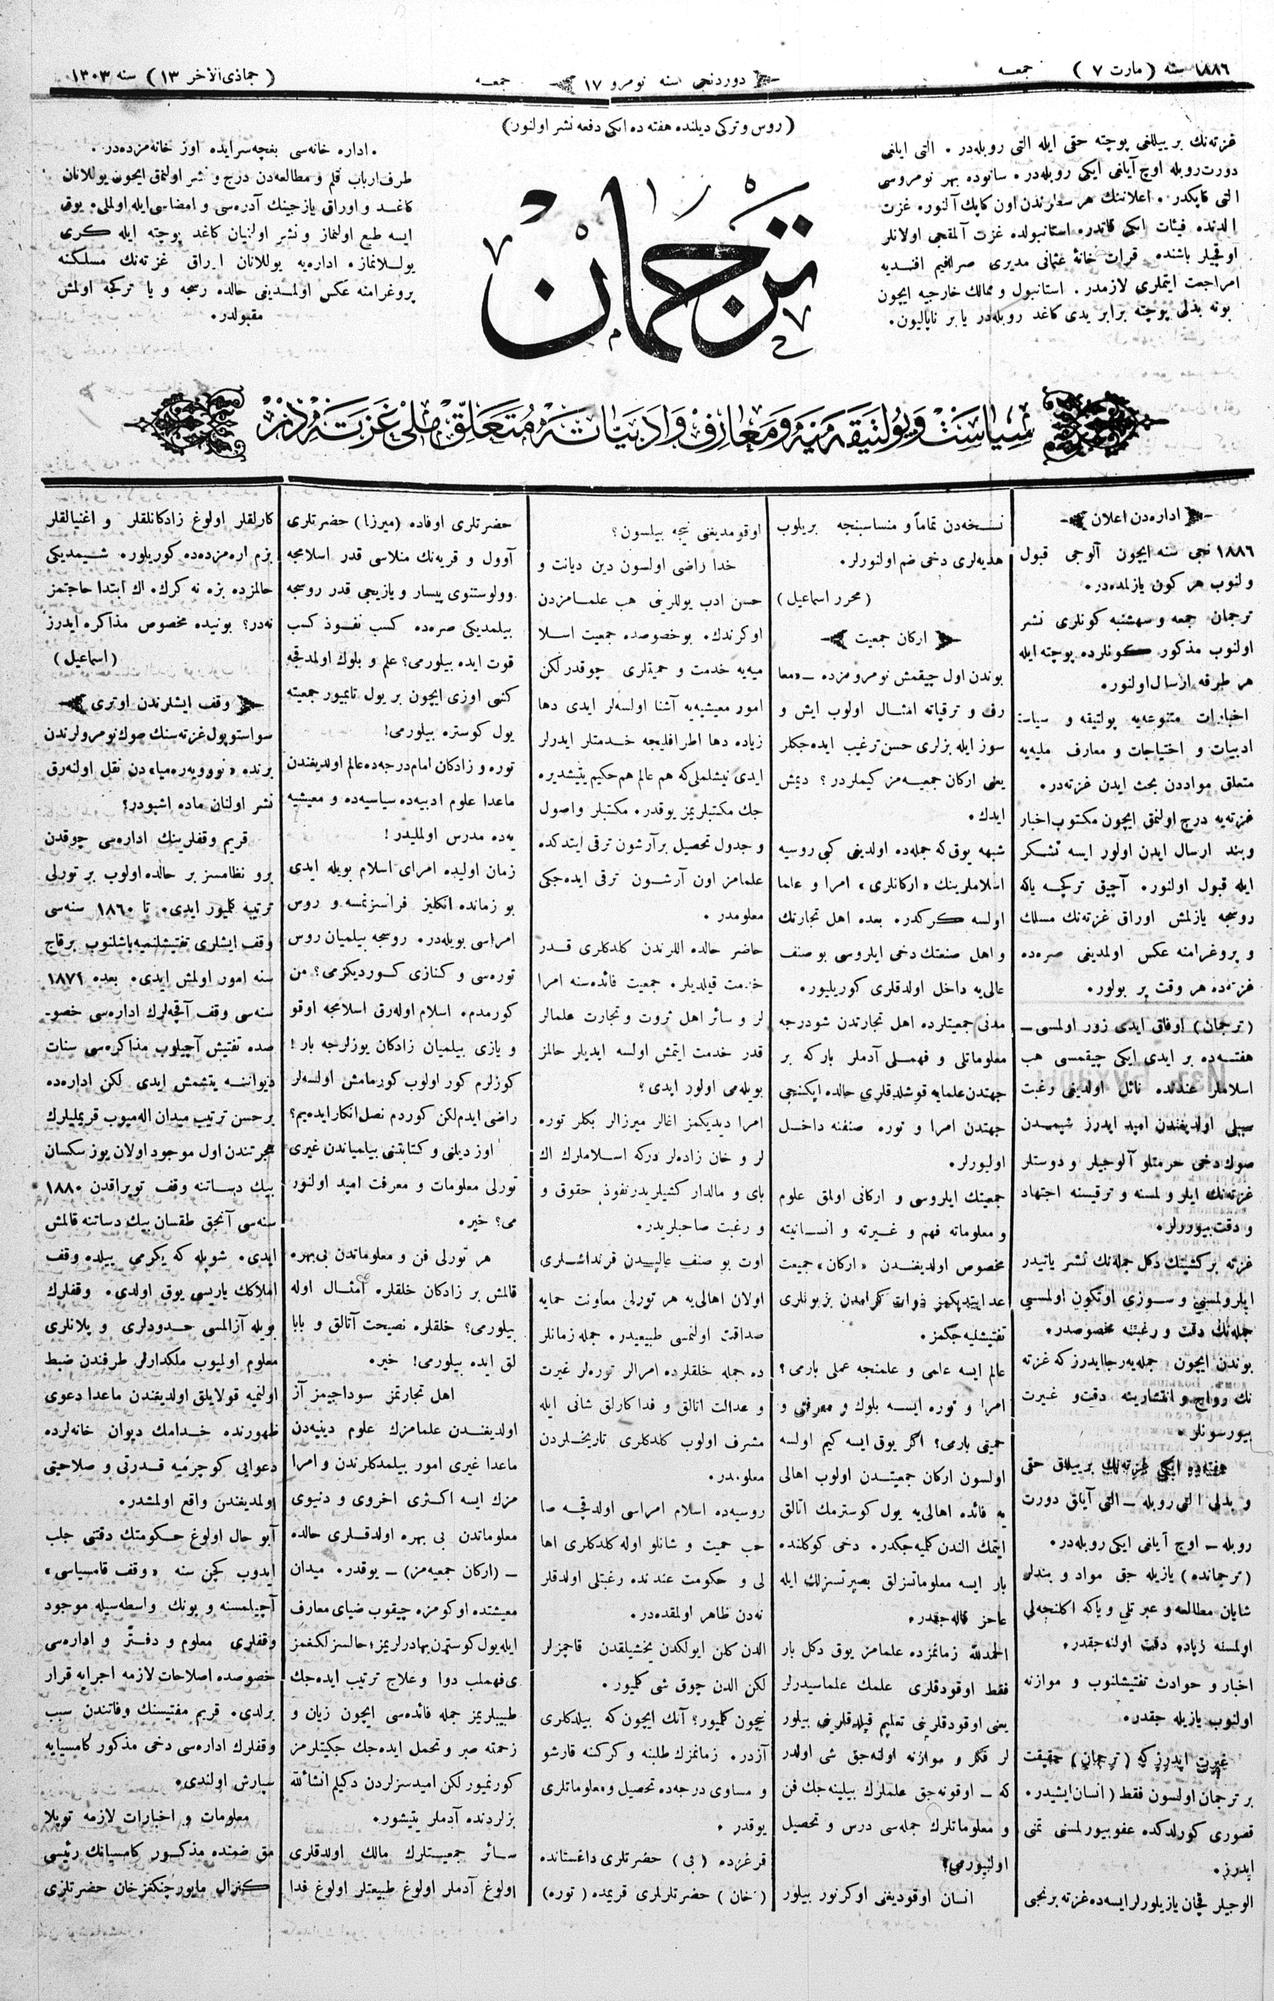 ١٨٨٦ سنه ( مارت ٧ ) جمعه
دوردنجی سنه نومرو ١٧
جمعه
( جماذی الاخر ١٣ ) سنه ١٣٠٣
(روس و ترکی دیلنده هفته ده ایکی دفعه نشر اولنور)
غزته‌نك بر ییللغی پوچته حقی ایله التی روبله‌در . التی ایلغی
دورت روبله اوچ آیاغی ایکی روبله‌در . ساتوده بهر نومروسی
التی کاپکدر . اعلاننك هر سطرندن اون کاپك آلنور . غزت
الدنده فیئات ایکی قاتدر . استانبولده غزت آلمقجی اولانلر
باشنده قرات خانهٔ عثمانی مدیری صرافیم افندیه
مراجعت ایتملری لازمدر . استانبول و ممالك خارجیه ایچون
بونه بدلی پوچته برابر یدی کاغد روبله‌در یا بر ناپالیون.
ترجمان
. اداره خانه‌سی بغچه‌سرایده اوز خانه‌مزده‌در .
طرف ارباب قلم و مطالعه‌دن درج و نشر اولنمق ایچون یوللانان
کاغد و اوراق یازجینك آدره‌سی و امضاسی ایله اولملی. یوق
ایسه طبع اولنماز و نشر اولنیان کاغد پوچته ایله کری
یوللانماز. اداره‌یه یوللانان اوراق غزته‌نك مسلکنه
پروغرامنه عکس اولمدیغی حالده رسجه و یا ترکجه اولمش
مقبولدر.
سیاست و پولتیقه‌یه و معارف و ادبیاته متعلق ملی غزته‌در
اداره‌دن اعلان
١٨٨٦ نجی سنه ایچون آلوجی قبول
ولنوب هر کون یازلمده‌در.
ترجمان جمعه و سهشنبه کونلری نشر
اولنوب مذکور کونلرده پوچته ایله
هر طرفه ارسال اولنور.
اخبارات متنوعه‌یه پولتیقه و سیاسة
ادبیات و احتیاجات و معارف ملیه‌یه
متعلق موادن بحث ایدن غزته‌در.
غزته‌یه درج اولنمق ایچون مکتوب اخبار
وبند ارسال ایدن اولور ایسه تشکر
ایله قبول اولنور. آچیق ترکجه یاکه
روسجه یازلمش اوراق غزته‌نك مسلك
و پروغرامنه عکس اولمدیغی صره‌ده
غزته‌ده هر وقت یر بولور.
(ترجمان) اوفاق ایدی زور اولمسی —
هفته‌ده بر ایدی ایکی چیقمسی هب
اسلاملر عندنده نائل اولدیغی رغبت
سببلی اولدیغندن امید ایدرز شیمدن
صوك دخی حرمتلو آلوجیلر و دوستلر
غزته‌نك ایلرولمسنه و ترقیسنه اجتهاد
و دقت بیوررلر.
غزته بر کشینك دکل جمله‌نك نشر یاتیدر
ایلرولمسی و سوزی اوتکون اولمسی
جمله‌نك دقت و رغبتنه مخصوصدر.
بوندن ایچون جمله‌یه رجا ایدرز که غزته
نك رواج و انتشارینه دقت و غیرت
بیورسونلر.
هفته‌ده ایکی غزته‌نك بر ییللق حقی
و بدلی التی روبله — التی آیاق دورت
روبله — اوچ آیاغی ایکی روبله‌در.
(ترجمانده) یازیله جق مواد و بندلر
شایان مطالعه و عبرتلی و یاکه اکلنجه‌لی
اولمسنه زیاده دقت اولنه‌جقدر.
اخبار و حوادث تفتیشلنوب و موازنه
اولنوب یازیله جقدر.
غیرت ایدرز که (ترجمان) حقیقت
بر ترجمان اولسون فقط (انسان ایشیدر.
قصوری کورلدکده عفو بیورلمسنی تمنی
ایدرز.
الوجیلر قچان یازیلورلر ایسه‌ده غزته برنجی
نسخه‌دن تماماً و مناسبنجه بریلوب
هدیه‌لری دخی ضم اولنورلر.
(محرر اسماعیل)
ارکان جمعیت
بوندن اول چیقمش نومرومزده — «معا
رف و ترقیاته امتثال اولوب ایش و
سوز ایله بزلری حسن ترغیب ایده‌جکلر
یعنی ارکان جمعیه‌مز کیملردر؟ دیمش
ایدك.
شبهه یوق که جمله‌ده اولدیغی کبی روسیه
اسلاملرینك «ارکانلری» امرا و علما
اولسه کرکدر. بعده اهل تجارتك
و اهل صنعتك دخی ایلروسی بو صنف
عالی‌یه داخل اولدقلری کوریلیور.
مدنی جمعیتلرده اهل تجارتدن شو درجه
معلوماتلی و فهملی آدملر بار که بر
جهتدن علمایه قوشلدقلری حالده ایکنجی
جهتدن امرا و توره صنفنه داخل
اولیورلر.
جمعیتك ایلروسی و ارکانی اولمق علوم
و معلوماته فهم و غیرته و انسانیته
مخصوص اولدیغندن «ارکان» جمعیت
عد ایتدیکمز ذوات کرامدن بز بونلری
تفتیشلیه‌جکمز.
عالم ایسه عامی و علمنجه عملی بارمی؟
امرا و توره ایسه بلوك و معرفتی و
حمیتی بارمی؟ اگر یوق ایسه کیم اولسه
اولسون ارکان جمعیتدن اولوب اهالی
یه فائده اهالی‌یه یول کوسترمك اتالق
ایتمك الندن کلمیه‌جکدر. دخی کوکلنده
بار ایسه معلوماتسزلق بصیرتسزلك ایله
عاجز قاله‌جقدر.
الحمدلله زمانمزده علمامز یوق دکل بار
فقط اوقودقلری علمك علماسیدرلر
یعنی اوقودقلرینی تعلیم قیلدقلرینی بیلور
لر فکر و موازنه اولنه‌جق شی اولدر
که — اوقونه‌جق علملرك بیلینه‌جك فن
و معلوماتلرك جمله‌سی درس و تحصیل
اولنیورمی؟
انسان اوقودیغنی اوکرنور بیلور
اوقومدیغنی نیچه بیلسون؟
خدا راضی اولسون دین دیانت و
حسن ادب یوللرینی هب علمامزدن
اوکرندك. بو خصوصده جمعیت اسلا
میه‌یه خدمت و حمیتلری چوقدر لکن
امور معیشیه‌یه آشنا اولسه‌لر ایدی دها
زیاده دها اطرافلیجه خدمتلر ایدرلر
ایدی نیشلملی که هم عالم هم حکیم یتیشدیره
جك مکتبلریمز یوقدر. مکتبلر واصول
و جدول تحصیل بر آرشون ترقی ایتدکده
علمامز اون آرشون ترقی ایده‌جکی
معلومدر.
حاضر حالده اللرندن کلدکلری قدر
خدمت قیلدیلر. جمعیت فائده‌سنه امرا
لر و سائر اهل ثروت و تجارت علمالر
قدر خدمت ایتمش اولسه ایدیلر حالمز
بویله‌می اولور ایدی؟
امرا دیدیکمز اغالر میرزالر بکلر توره
لر و خان زاده‌لر درکه اسلاملرك اك
بای و مالدار کشیلریدر نفوذ حقوق و
و رغبت صاحبلریدر.
اوت بو صنف عالییدن قرنداشلری
اولان اهالی‌یه هر تورلی معاونت حمایه
صداقت اولنمسی طبیعیدر. جمله زمانلر
ده جمله خلقلرده امرالر توره‌لر غیرت
و عدالت اتالق و فداکارلق شانی ایله
مشرف اولوب کلدکلری تاریخلردن
معلومدر.
روسیه‌ده اسلام امراسی اولدقچه صا
حب حمیت و شانلو اوله کلدکلری اها
لی و حکومت عندنده رغبتلی اولدقلر
نه‌دن ظاهر اولمقده‌در.
الدن کلن ایولکدن یخشیلقدن قاچمزلر
لکن الدن چوق شی کلمیور.
نیچون کلمیور؟ آنك ایچون که بیلدکلری
آزدر. زمانمزك طلبنه و کرکنه قارشو
و مساوی درجه‌ده تحصیل و معلوماتلری
یوقدر.
قرغزده (بی) حضرتلری داغستانده
(خان) حضرتلرلری قریمده (توره)
حضرتلری اوفاده (میرزا) حضرتلری
آوول و قریه‌نك منلاسی قدر اسلامجه
وولوستنوی پیسار و یازیجی قدر روسجه
بیلمدیکی صره‌ده کسب نفوذ کسب
قوت ایده بیلورمی؟ علم و بلوك اولمدقچه
کشی اوزی ایچون بر یول تاپمیور جمعیته
یول کوستره بیلورمی!
توره و زادکان امام درجه‌ده عالم اولدیغندن
ماعدا علوم ادبیه‌ده سیاسیه‌ده و معیشیه
یه‌ده مدرس اولملیدر!
زمان اولیده امرای اسلام بویله ایدی
بو زمانده انکلیز فرانسز نمسه و روس
امراسی بویله‌در. روسجه بیلمیان روس
توره‌سی و کنازی کوردیکزمی؟ من
کورمدم. اسلام اوله‌رق اسلامجه اوقو
و یازی بیلمیان زادکان یوزلرجه بار!
کوزلرم کور اولوب کورمامش اولسه‌لر
راضی ایدم لکن کوردم نصل انکار ایده‌یم؟
اوز دیلنی و کتابتنی بیلمیاندن غیری
تورلی معلومات و معرفت امید اولنور
می؟ خیر.
هر تورلی فن و معلوماتدن بی‌بهره
قالمش بر زادکان خلقلره امتثال اوله
بیلورمی؟ خلقلره نصیحت آتالق و بابا
لق ایده بیلورمی! خیر.
اهل تجارتمز سوداجیمز آز
اولدیغندن علمامزك علوم دینیه‌دن
ماعدا غیری امور بیلمدکلرندن و امرا
مزك ایسه اکثری اخروی و دنیوی
معلوماتدن بی بهره اولدقلری حالده
— (ارکان جمعیه‌مز) — یوقدر. میدان
معیشتده اوکومزه چیقوب ضیای معارف
ایله یول کوسترن بهادرلریمز؛ حالسزلکغمز
ی فهملب دوا و علاج ترتیب ایده‌جك
طبیبلریمز جمله فائده‌سی ایچون زیان و
زحمته صبر و تحمل ایده‌جك جکیتلرمز
کورنمیور لکن امیدسزلردن دکلیم انشاالله
بزلردنده آدملر یتیشور.
سائر جمعیتلرك مالك اولدقلری
اولوغ آدملر اولوغ طبیعتلر اولوغ فدا
کارلقلر اولوغ زادکانلقلر و اغنیالقلر
بزم اره‌مزده‌ده کوریلور. شیمدیکی
حالمزده بزه نه کرك. اك ابتدا حاجتمز
نه‌در؟ بونیده مخصوص مذاکره ایدرز
(اسماعیل)
وقف ایشلرندن اوتری
سواستوپول غزته‌سنك صوك نومرولرندن
برنده «نووویه‌رەمیا» دن نقل اولنه‌رق
نشر اولنان ماده اشبودر؟
قریم وقفلرینك اداره‌سی چوقدن
برو نظامسز بر حالده اولوب بر تورلی
ترتیبه کلمیور ایدی. تا ١٨٦٠ سنه‌سی
وقف ایشلری تفتیشلنمیه باشلنوب برقاچ
سنه امور اولمش ایدی. بعده ١٨٧٢
سنه‌سی وقف آقچه‌لرك اداره‌سی خصو-
صده تفتیش آچیلوب مذاکره‌سی سنات
دیواننه یتشمش ایدی لکن اداره‌ده
بر حسن ترتیب میدان المیوب قریملیلرك
هجرتندن اول موجود اولان یوز سکسان
بیك دساتنه وقف توپراقدن ١٨٨٠
سنه‌سی آنجق طقسان بیك دساتنه قالمش
ایدی. شویله که یکرمی ییلده وقف
املاکك یاریسی یوق اولدی. وقفلرك
بویله آزالمسی حدودلری و پلانلری
معلوم اولمیوب ملکدارلر طرفندن ضبط
اولنمیه قولایلق اولدیغندن ماعدا دعوی
ظهورنده خدامك دیوان خانه‌لرده
دعوایی کوچرمیه قدرتی و صلاحیتی
اولمدیغندن واقع اولمشدر.
آبو حال اولوغ حکومتك دقتنی جلب
ایدوب کچن سنه «وقف قامسیاسی»
آچیلمسنه و بونك واسطه‌سیله موجود
وقفلری معلوم و دفتر و اداره‌سی
خصوصده اصلاحات لازمه اجرایه قرار
برلدی. قریم مفتیسنك وفاتندن سبب
وقفلرك اداره‌سی دخی مذکور کامسیایه
سپارش اولندی.
معلومات و اخبارات لازمه توپلا
مق ضمنده مذکور کامسیانك رئیسی
کنرال مایور چنکزخان حضرتلری